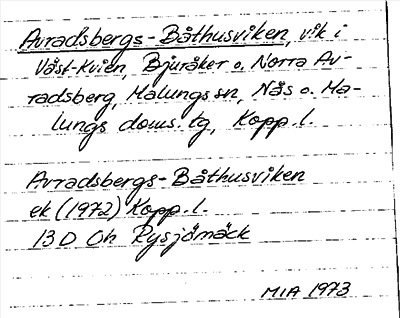 Avradsbergs-Båthusviken, vik i
Väst-Kvien, Bjuråker o. Norra Av-
radsberg, Malungs sn, Nås o. Ma-
lungs doms. tg, Kopp. l.
Avradsbergs-Båthusviken
ek (1972) Kopp. l.
13 D 0h Rysjömäck
MIA 1973